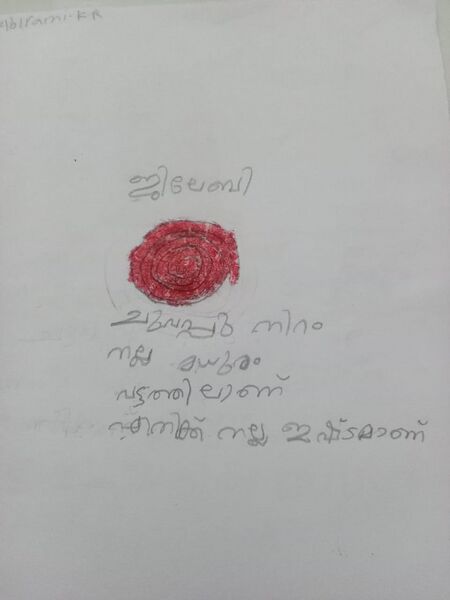 Abirami-KR
ജിലേബി
ചുവപ്പു നിറം
നല്ല മധുരം
വട്ടത്തിലാണ്
എനിക്ക് നല്ല ഇഷ്ടമാണ്